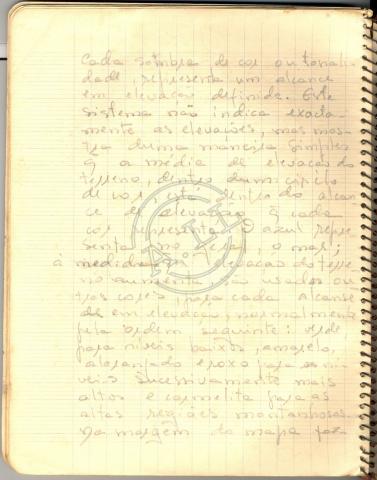 Cada sombra de cor ou tonali-
dade, representa um alcance
em elevação definida. Este
sistema não indica exacta-
mente as elevações, mas mos-
tra duma maneira simples
q a média de elevação do
terreno, dentro dum
de cor, está dentro do alcan-
ce de elevação q cada
cor representa. O azul repre-
senta no geral, o mar;
à medida q a elevação do terre-
no aumenta são usados ou-
tras cores, para cada alcance
de em elevação, normalmente
pela ordem seguinte: verde
para níveis baixos, amarelo,
alaranjado e roxo para os ní-
veis sucessivamente mais
altos e carmelita para as
altas regiões montanhosas.
Na margem do mapa faz-